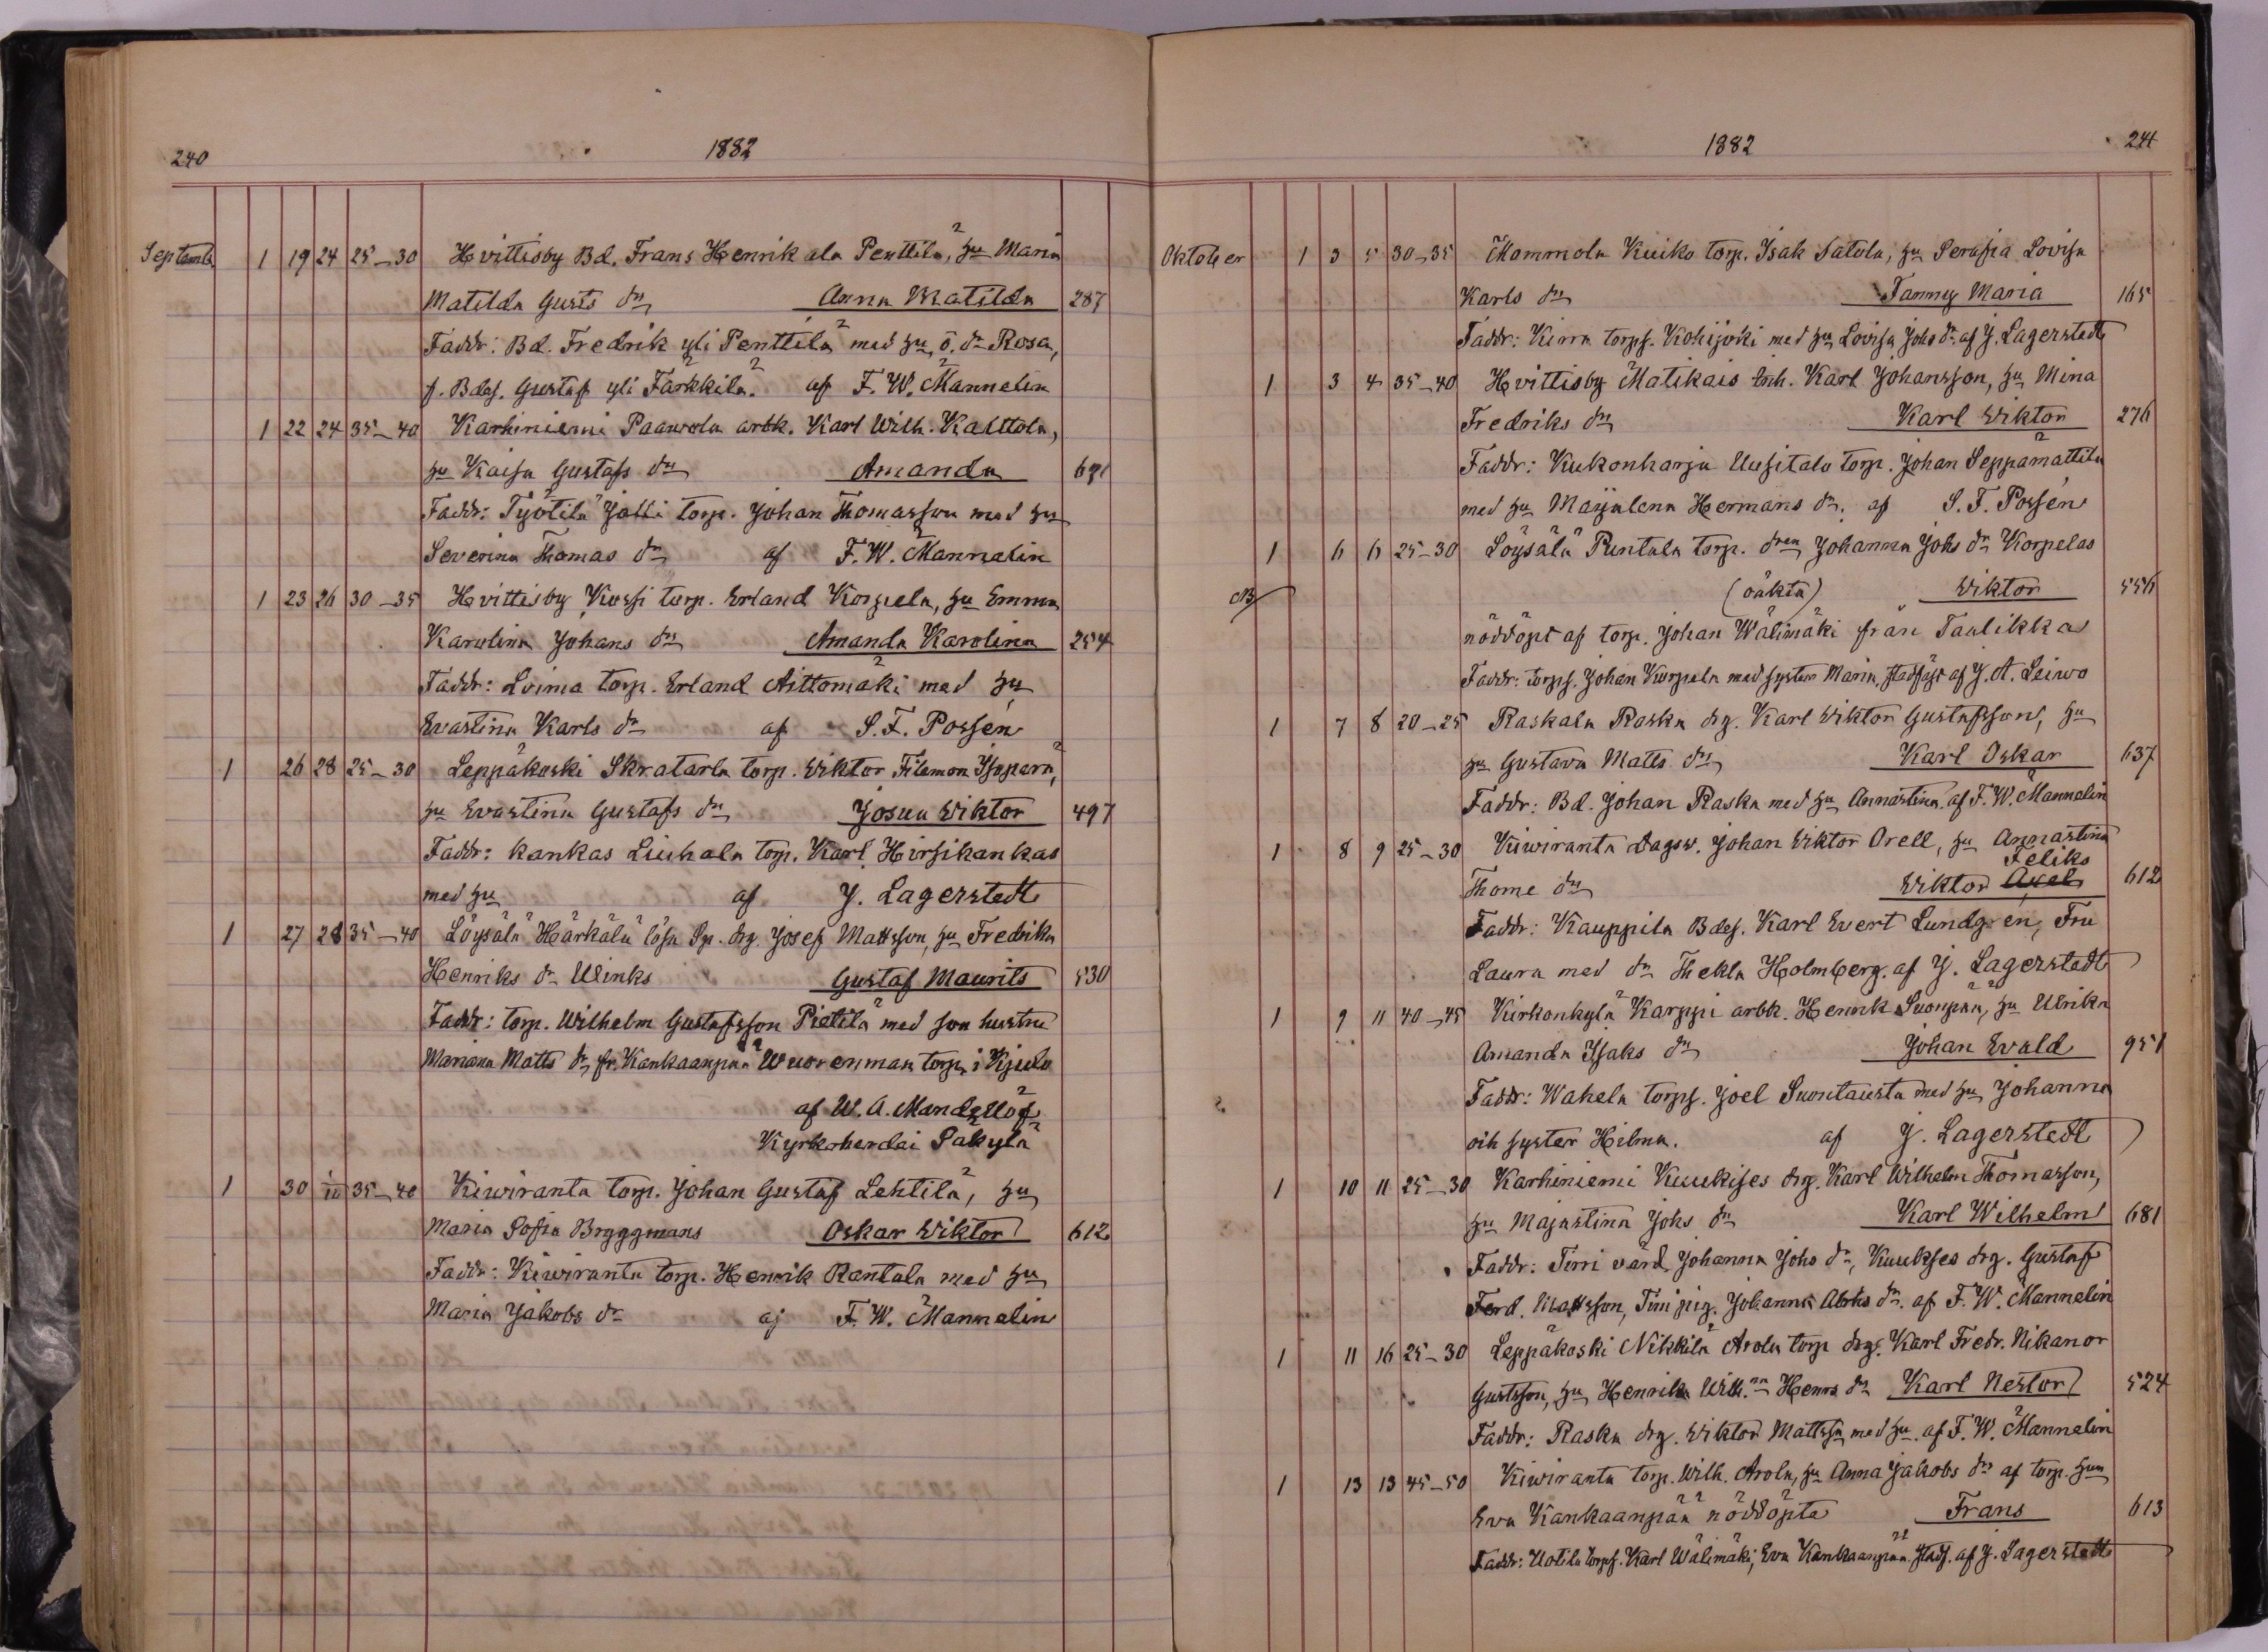 240 1882
Septemb. 1 19 24 25-30 Hvittisby Bd. Frans Henrik ala Penttilä, hu Maria
Matilda Gusts dr Anna Matilda 287
Faddr: Bd. Fredrik yli Penttilä med hu, o. dr Rosa,
f. Bdes. Gustaf yli Farkkila. af F. W. Mannelin
1 22 24 35-40 Karhiniemi Paavola arbk. Karl Wilh. Kalttola,
hu Kaisa Gustafs dr Amanda 671
Faddr: Työtilä Jalli torp. Johan Thomasson med hu
Severina Thomas dr af F. W. Mannelin
1 23 26 30-35 Hvittisby Kossi torp. Erland Korpela, hu Emma
Karolina Johans dr Amanda Karolina 254
Faddr: Loima torp. Erland Aittomäki med hu
Evastina Karls dr af S. F. Possén
1 26 28 25-30 Leppäkoski Skratarla torp. Viktor Filemon Isoperä,
hu Evastina Gustafs dr Josua Viktor 497
Faddr: Kankas Liuhala torp. Karl Hirsikankas
med hu af J. Lagerstedt
1 27 28 35-40 Löysälä Härkälä lösa Sp. drg. Josef Mattsson, hu Fredrika
Henriks dr Winks Gustaf Maurits 530
Faddr: torp. Wilhelm Gustafsson Pietilä med son hustru
Mariana Matts dr, fr. Kankaanpää Wuorenmaa torp. i Kjulo
af W. A. Mandellöf
Kyrkoherde i Säkylä
1 30 1/10 35-40 Kiviranta torp. Johan Gustaf Lehtilä, hu
Maria Sofia Bryggmans Oskar Viktor 612
Faddr: Kiviranta torp. Henrik Rantala med hu
Maria Jakobs dr af F. W. Mannelin
1882 241
Oktober 1 3 5 30-35 Mommola Kuiko torp. Isak Satola, hu Serafia Lovisa
Karls dr Fanny Maria 165
Faddr: Kinra torps. Kohijoki med hu Lovisa Johs dr. af J. Lagerstedt
1 3 4 35-40 Hvittisby Matikais inh. Karl Johansson, hu Mina
Fredriks dr Karl Viktor 276
Faddr: Kukonharja Uusitalo torp. Johan Seppämattila
med hu Majalena Hermans dr. af S. F. Possén
1 6 6 25-30 Löysälä Puntala torp. dren Johanna Johs dr Korpelas
NB (oäkta) Viktor 556
nöddöpt af torp. Johan Wälimäki från Taulikka
Faddr: torps. Johan Korpela med syster Maria, stadfäst af J. A. Leivo
1 7 8 20-25 Raskala Raska drg. Karl Viktor Gustafsson, hu
hu Gustava Matts dr Karl Oskar 637
Faddr: Bd. Johan Raska med hu Annastina. af F. W. Mannelin
1 8 9 25-30 Kiiviranta Dagsv. Johan Viktor Orell, hu Annastina
Feliks
Thome dr Viktor Axel 612
Faddr: Kauppila Bdes. Karl Evert Lundgrén, Fru
Laura med dr Thekla Holmberg. af J. Lagerstedt
1 9 11 40-45 Kirkonkylä Karppi arbk. Henrik Suonpää, hu Ulrika
Amanda Isaks dr Johan Evald 951
Faddr: Wahela torps. Joel Suontausta med hu Johanna
och syster Hilma. af J. Lagerstedt
1 10 11 25-30 Karhiniemi Kuukises drg. Karl Wilhelm Thomasson,
hu Majastina Johs dr Karl Wilhelm 681
Faddr: Tirri värd. Johanna Johs dr, Kuukses drg. Gustaf
Ferd. Mattsson, Timi pig. Johanna Abrhs dr. af F. W. Mannelin
1 11 16 25-30 Leppäkoski Nikkilä Arola torp drg. Karl Fredr. Nikanor
Gustsson, hu Henrika Wilh.na Henrs dr Karl Nestor 524
Faddr: Raska drg. Viktor Mattsson med hu. af F. W. Mannelin
1 13 13 45-50 Kiviranta torp. Wilh. Arola, hu Anna Jakobs dr af torp. hun
Eva Kankaanpää nöddöpta Frans 613
Faddr: Uotila torps. Karl Wälimäki, Eva Kankaanpää. stadf. af J. Lagerstedt